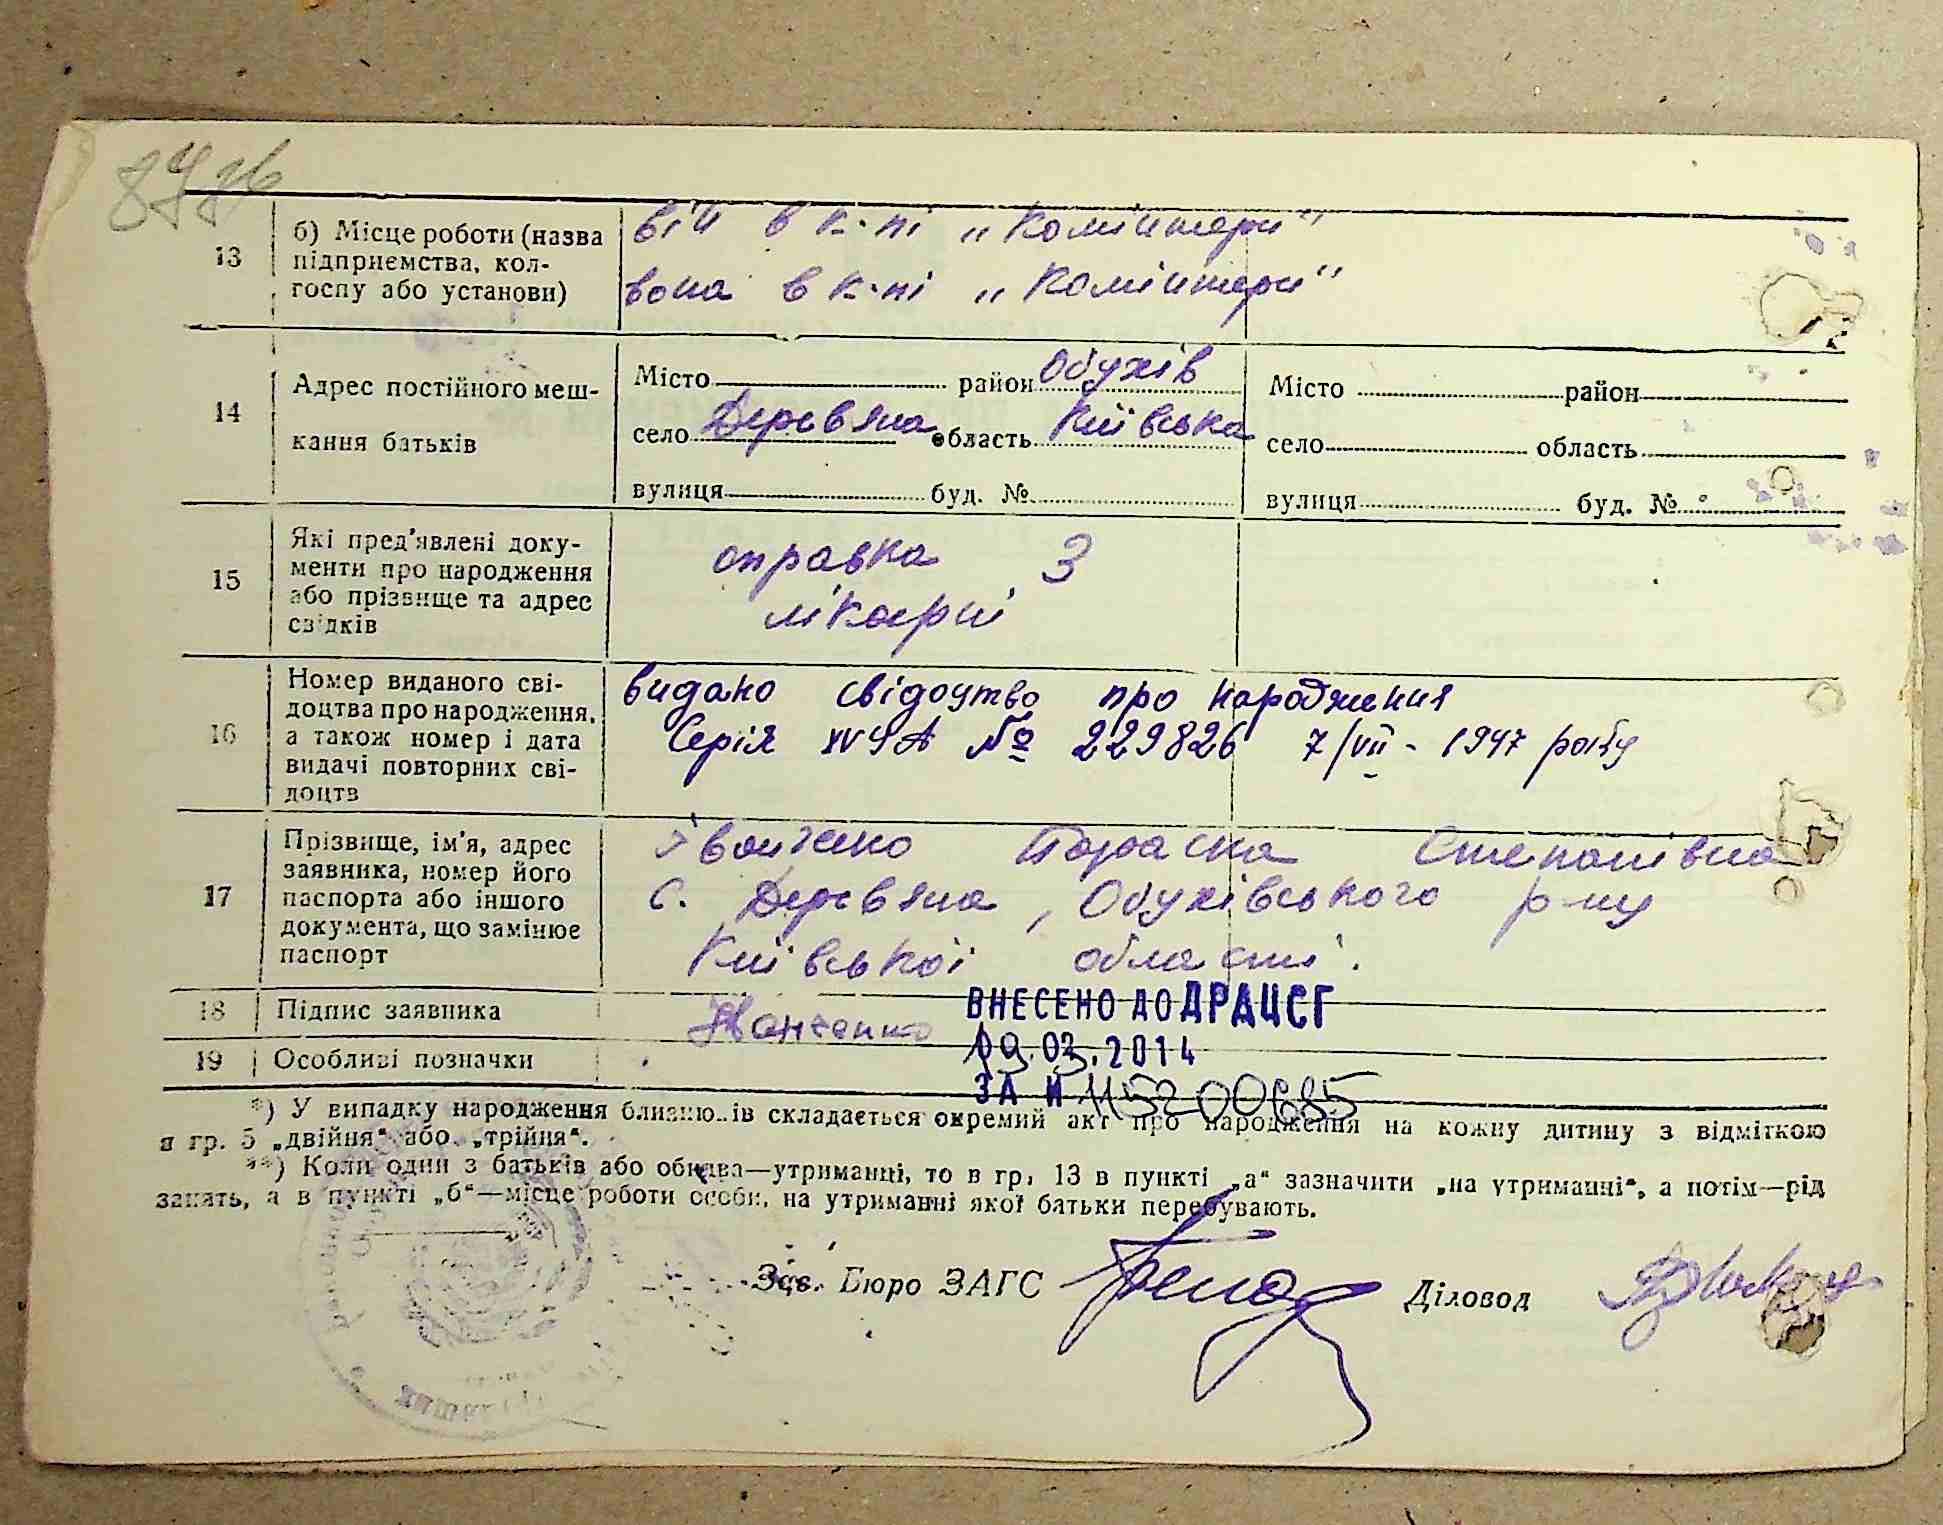 13
б) Місце роботи (назва
підприємства, кол-
госпу або установи)
він в к-пі „Комінтерн“
вона в к-пі „Комінтерн“
14
Адрес постійного меш-
кання батьків
Місто район Обухів
село Дерев'яна область Київська
вулиця буд. №
Місто район
село область
вулиця буд. №
15
Які пред'явлені доку-
менти про народження
або прізвище та адрес
свідків
справка З
лікарні
16
Номер виданого сві-
доцтва про народження,
а також номер і дата
видачі повторних сві-
доцтв
видано свідоцтво про народження
Серія ХV ЧА № 229826 7/VII - 1947 року
17
Прізвище, ім'я, адрес
заявника, номер його
паспорта або іншого
документа, що замінює
паспорт
Іванченко Параска Степанівна
с. Дерев'яна, Обухівського р-ну
Київської області.
18
Підпис заявника
Іванченко
ВНЕСЕНО ДО ДРАЦСГ
19
Особливі позначки
19.03.2014
ЗА №
*) У випадку народження близнюків складається окремий акт про народження на кожну дитину з відміткою
в гр. 5 „двійня“ або „трійня“.
**) Коли один з батьків або обидва—утриманці, то в гр. 13 в пункті „а“ зазначити „на утриманні“, а потім—рід
занять, а в пункті „б“—місце роботи особи, на утриманні якої батьки перебувають.
Зав. Бюро ЗАГС
Діловод